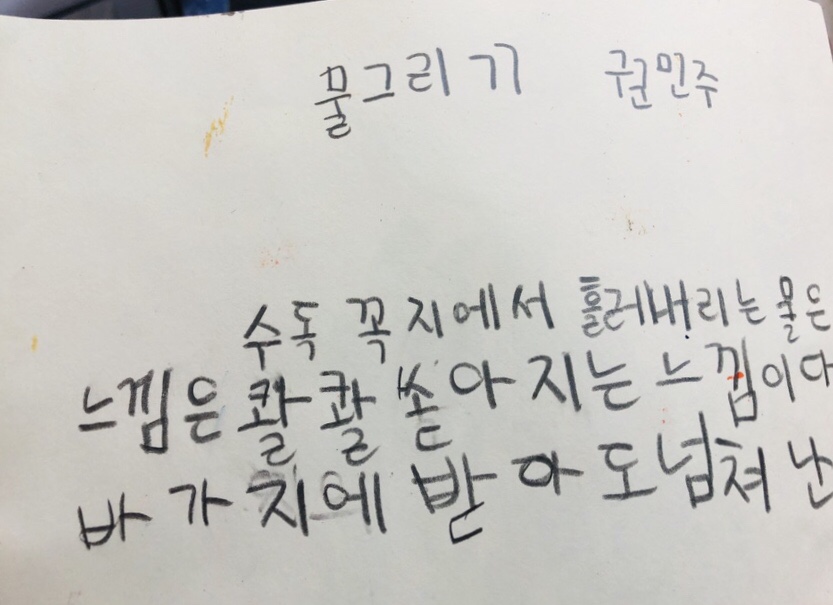 물그리기 권민주
수독 꼭지에서 흘러내리는 물은
느낌은 콸콸 쏟아지는 느낌이다
바가지에 받아도 넘쳐 난